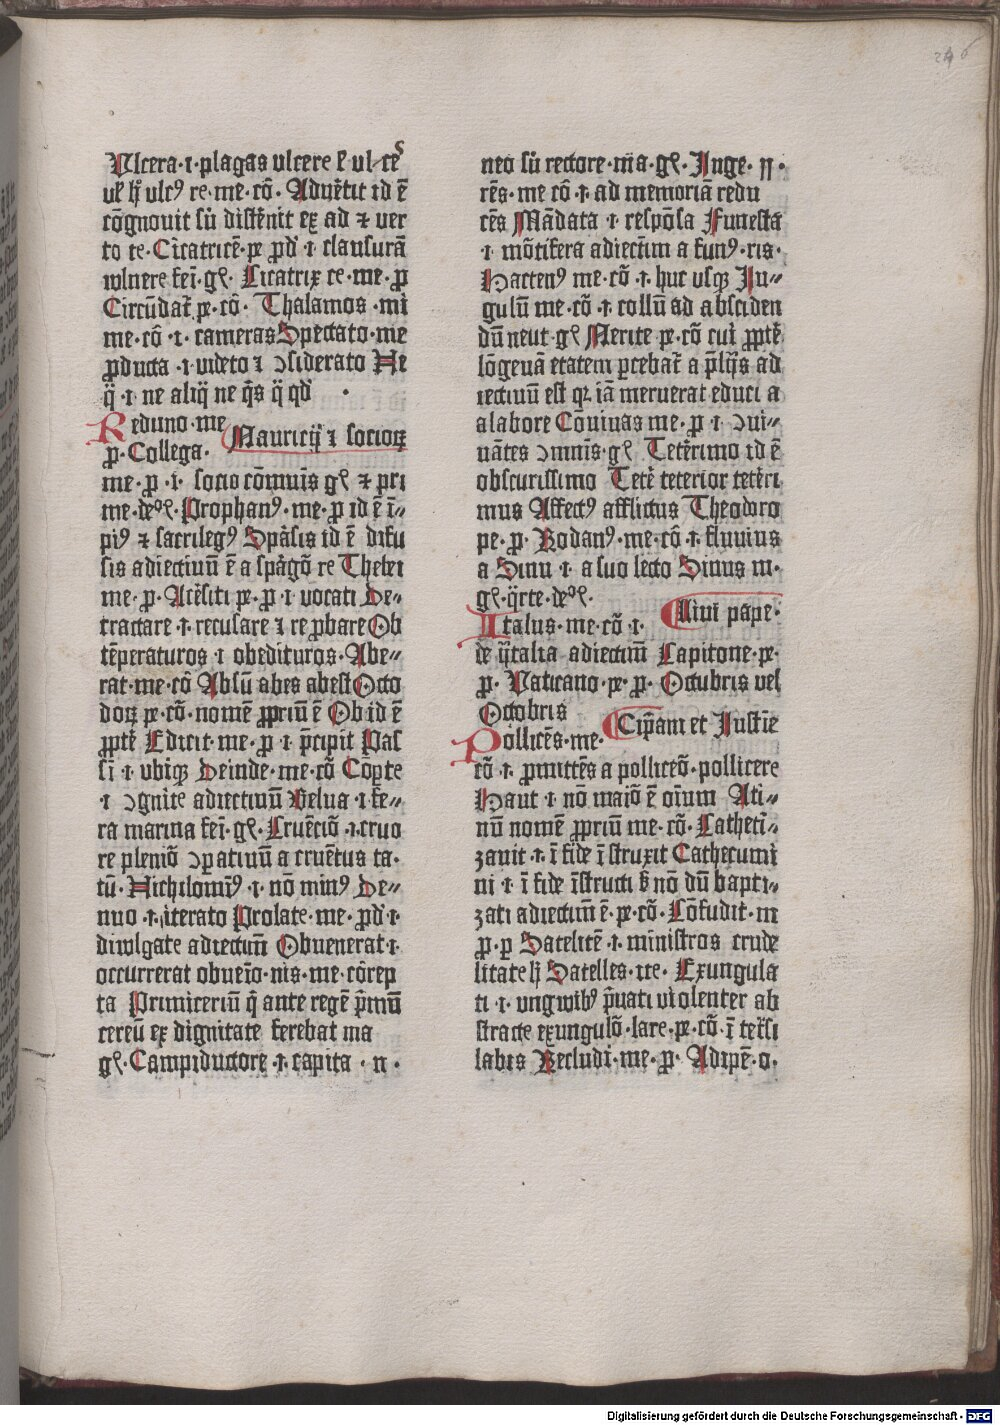 246
Ulcera·i·plagas ulcere ꝉ ulces
uꝉ hꝫ ulcꝰ re·me·cō· Adv̄tit id ē
cōgnovit sū distēnit ex ad ⁊ ver
to te·Cicatricē·pe ꝓd̄ ·i· clausurā
wlnere fei·gꝭ· Cicatrix ce·me·ꝓ
Circūdat̄ pe·cō· Thalamos·mi
me·cō·i·cameras Spectato·me
ꝓducta·i·videto ⁊ ↄsiderato Ne
q̄·i·ne aliq̄ ne q̄s q̄ qd̄ ·
Reduno·me
Mauricij ⁊ socioꝝ
ꝓ·Collega·
me·ꝓ·i·socio cōmuīs gꝭ ⁊ pri
me·deᵒꝭ· Prophanꝰ·me·ꝓ id ē ī-
piꝰ ⁊ sacrilegꝰ Spāsis id ē difu
sis adiectivū ē a spāgō re Thebei
me·ꝓ·Acēsiti pe·ꝓ·i vocati De-
tractare·i·recusare ⁊ reꝓbare Ob
tēperaturos i obedituros·Abe-
rat·me·cō Absū abes abest Octo
doꝝ pe·cō·nomē ꝓpriū ē Ob id ē
ꝓptē Edicit·me·ꝓ·i·p̄cipit Pas
si·i·ubiqꝫ Deinde·me·cō Cōpte
·i·ↄgnite adiectivū Belua·i·fe-
ra marina fei·gꝭ·Cruēciō·i·cruo
re pleniō ↄpativū a cruētus ta·
tū·Nichilomīꝰ·i·nō minꝰ De-
nuo·i·iterato Prolate·me·ꝓd̄·i·
divlgate adiectivū Obvenerat·i·
occurrerat obveīo·nis·me·cōrep
ta Primiceriū q̄ ante regē p̄mū
cereū ex dignitate ferebat ma
gꝭ·Campiductore·i·capita·n·
neo sū rectore·ma·gꝭ·Inge·
rēs·me cō·i·ad memoriā redu
cēs Mādata·i·respōsa Funesta
·i·mōtifera adiectivm a funꝰ·ris·
Hactenꝰ me·cō·i·huc usqꝫ Iu-
gulū me·cō·i·collū ad absciden
dū neut·gꝭ Merite pe·cō cui ꝓptē
lōgevā etatem ꝑcebat̄ a p̄lijs ad
iectivū est qꝛ iā meruerat educi a
a labore Cōvivas me·ꝓ·i·ↄvi-
vātes ↄmnis·gꝭ· Tetērimo id ē
obscurissimo Tetē teterior tetēri
mus Affectꝰ afflictus Theodoro
pe·ꝓ·Rodanꝰ·me·cō·i·fluvius
a Sinu·i·a suo lecto Sinus m·
gꝭ·q̄rte·deᵒꝭ·
Lini pape·
Italus·me·cō·i·
de ytalia adiectivū Capitone·pe·
ꝓ·Vaticano·pe·ꝓ·Octubris vel
Octobris
Cip̄ani et Iustīe
Pollicēs·me·
cō·i·ꝓmittēs a polliceō·pollicere
Haut·i·nō maiō ē oīum Ati-
nū nomē ꝓpriū me·cō·Catheti-
zavit·i·ī fide īstruxit Cathecumi
ni·i·ī fide īstructi ꝫ nō dū bapti-
zati adiectivm ē·pe·cō·Cōfudit·m
ꝓ·ꝑ Satelitē·i·ministros crude
litate hꝫ Satelles·ite·Exungula
ti·i·ungwibꝰ p̄vati violenter ab
stracte exungulō·lare·pe·cō·ī tersi
labis Recludi·me·ꝓ·Adipē·o·
Digitalisierung gefördert durch die Deutsche Forschungsgemeinschaft - DFG